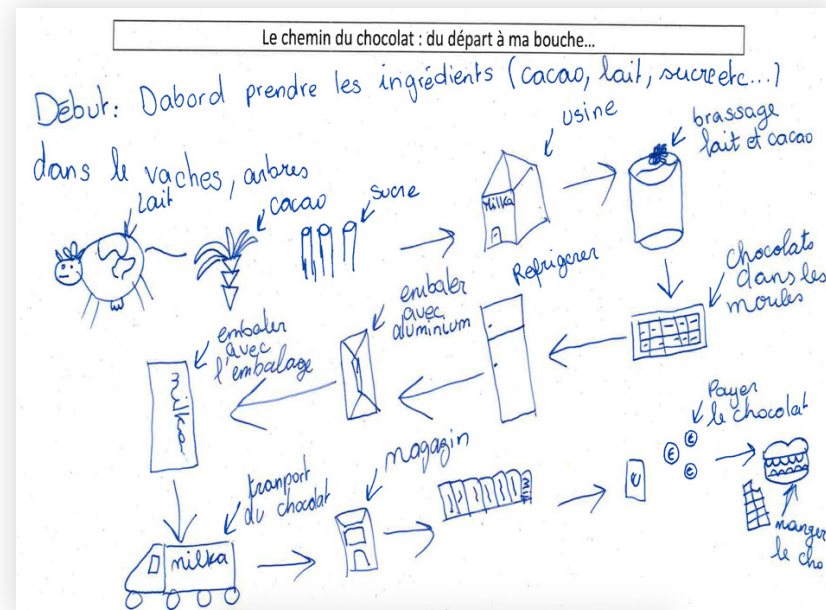 Le chemin du chocolat : du départ à ma bouche...
Début: Dabord prendre les ingrédients (cacao, lait, sucre etc...)
dans le vaches, arbres
Lait
cacao
sucre
usine
milka
brassage
lait et cacao
chocolats
dans les
moules
Refrigerer
embaler
avec
aluminium
embaler
avec
l'embalage
milka
tranport
du chocolat
milka
magagin
Payer
le chocolat
€
€
€
manger
le cho